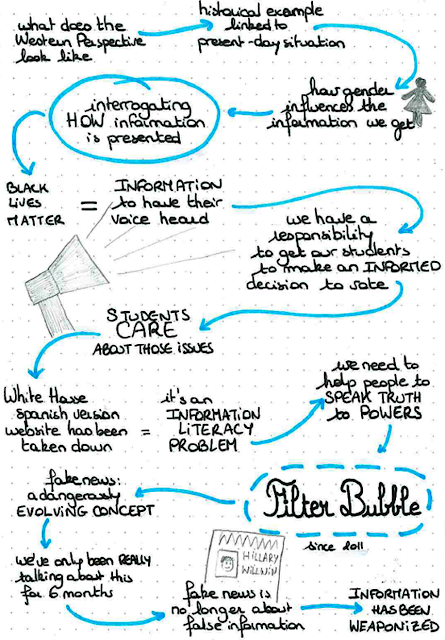 what does the
Western Perspective
look like
historical example
linked to
present-day situation
how gender
influences the
information we get
interrogating
HOW information
is presented
BLACK
LIVES
MATTER
=
INFORMATION
to have their
voice heard
we have a
responsibility
to get our students
to make an INFORMED
decision to vote
STUDENTS
CARE
ABOUT THOSE ISSUES
White House
spanish version
website has been
taken down
=
it's an
INFORMATION
LITERACY
PROBLEM
we need to
help people to
SPEAK TRUTH
to POWERS
Filter Bubble
since 2011
fake news:
a dangerously
EVOLVING CONCEPT
we've only been REALLY
talking about this
for 6 months
HILLARY
WILL WIN
fake news is
no longer about
false information
INFORMATION
HAS BEEN
WEAPONIZED